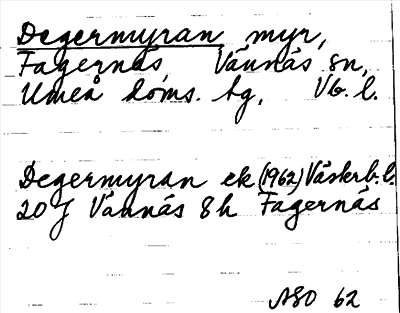 Degermyran myr,
Fagernäs Vännäs sn,
Umeå doms. tg, Vb. l.
Degermyran ek (1962) Västerb. l.
20J Vännäs 8h Fagernäs
ASO 62